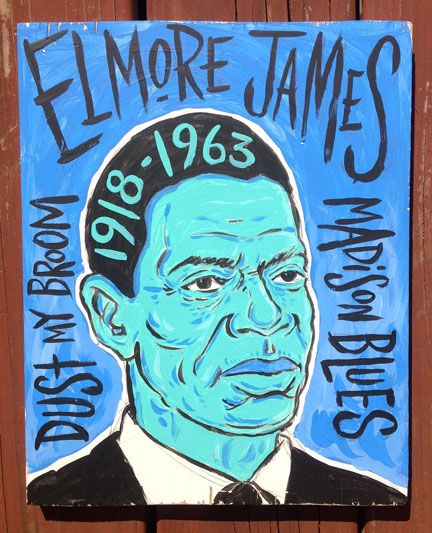 ELMORE JAMES
1918-1963
DUST MY BROOM
MADISON BLUES